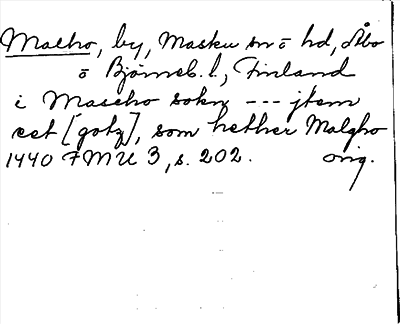 Malho, by, Masku sn o hd, Åbo
o Björneb. l., Finland
i Mascho sokn --- jtem
eet [gotz], som hether Malgho
1440 FMU 3, s. 202. orig.